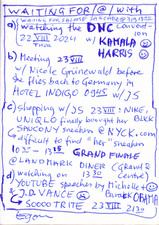 WAITING FOR/@/with
a) watching the DNC convent
22 VIII 2024 w/ KAMALA ion
HARRIS
b) Meeting 23 VIII
w/ Nicole Grünewald before
she flies back to Germany in
HOTEL INDIGO 0945 w/ JS
c) shopping w/ JS 23 VIII: NIKE,
UNIQLO finally bought her BLKK
SAUCONY sneakers @ NYCK.com
difficult to find "her" sneakers
1015 - 1315 GRAND FINALE
@ LANDMARK DINER (Grand &
Centre)
d) watching on 1330
YOUTUBE speeches by Michelle &
& J.D. VANCE OBAMA
SOOOO TRITE 23 VIII 2130